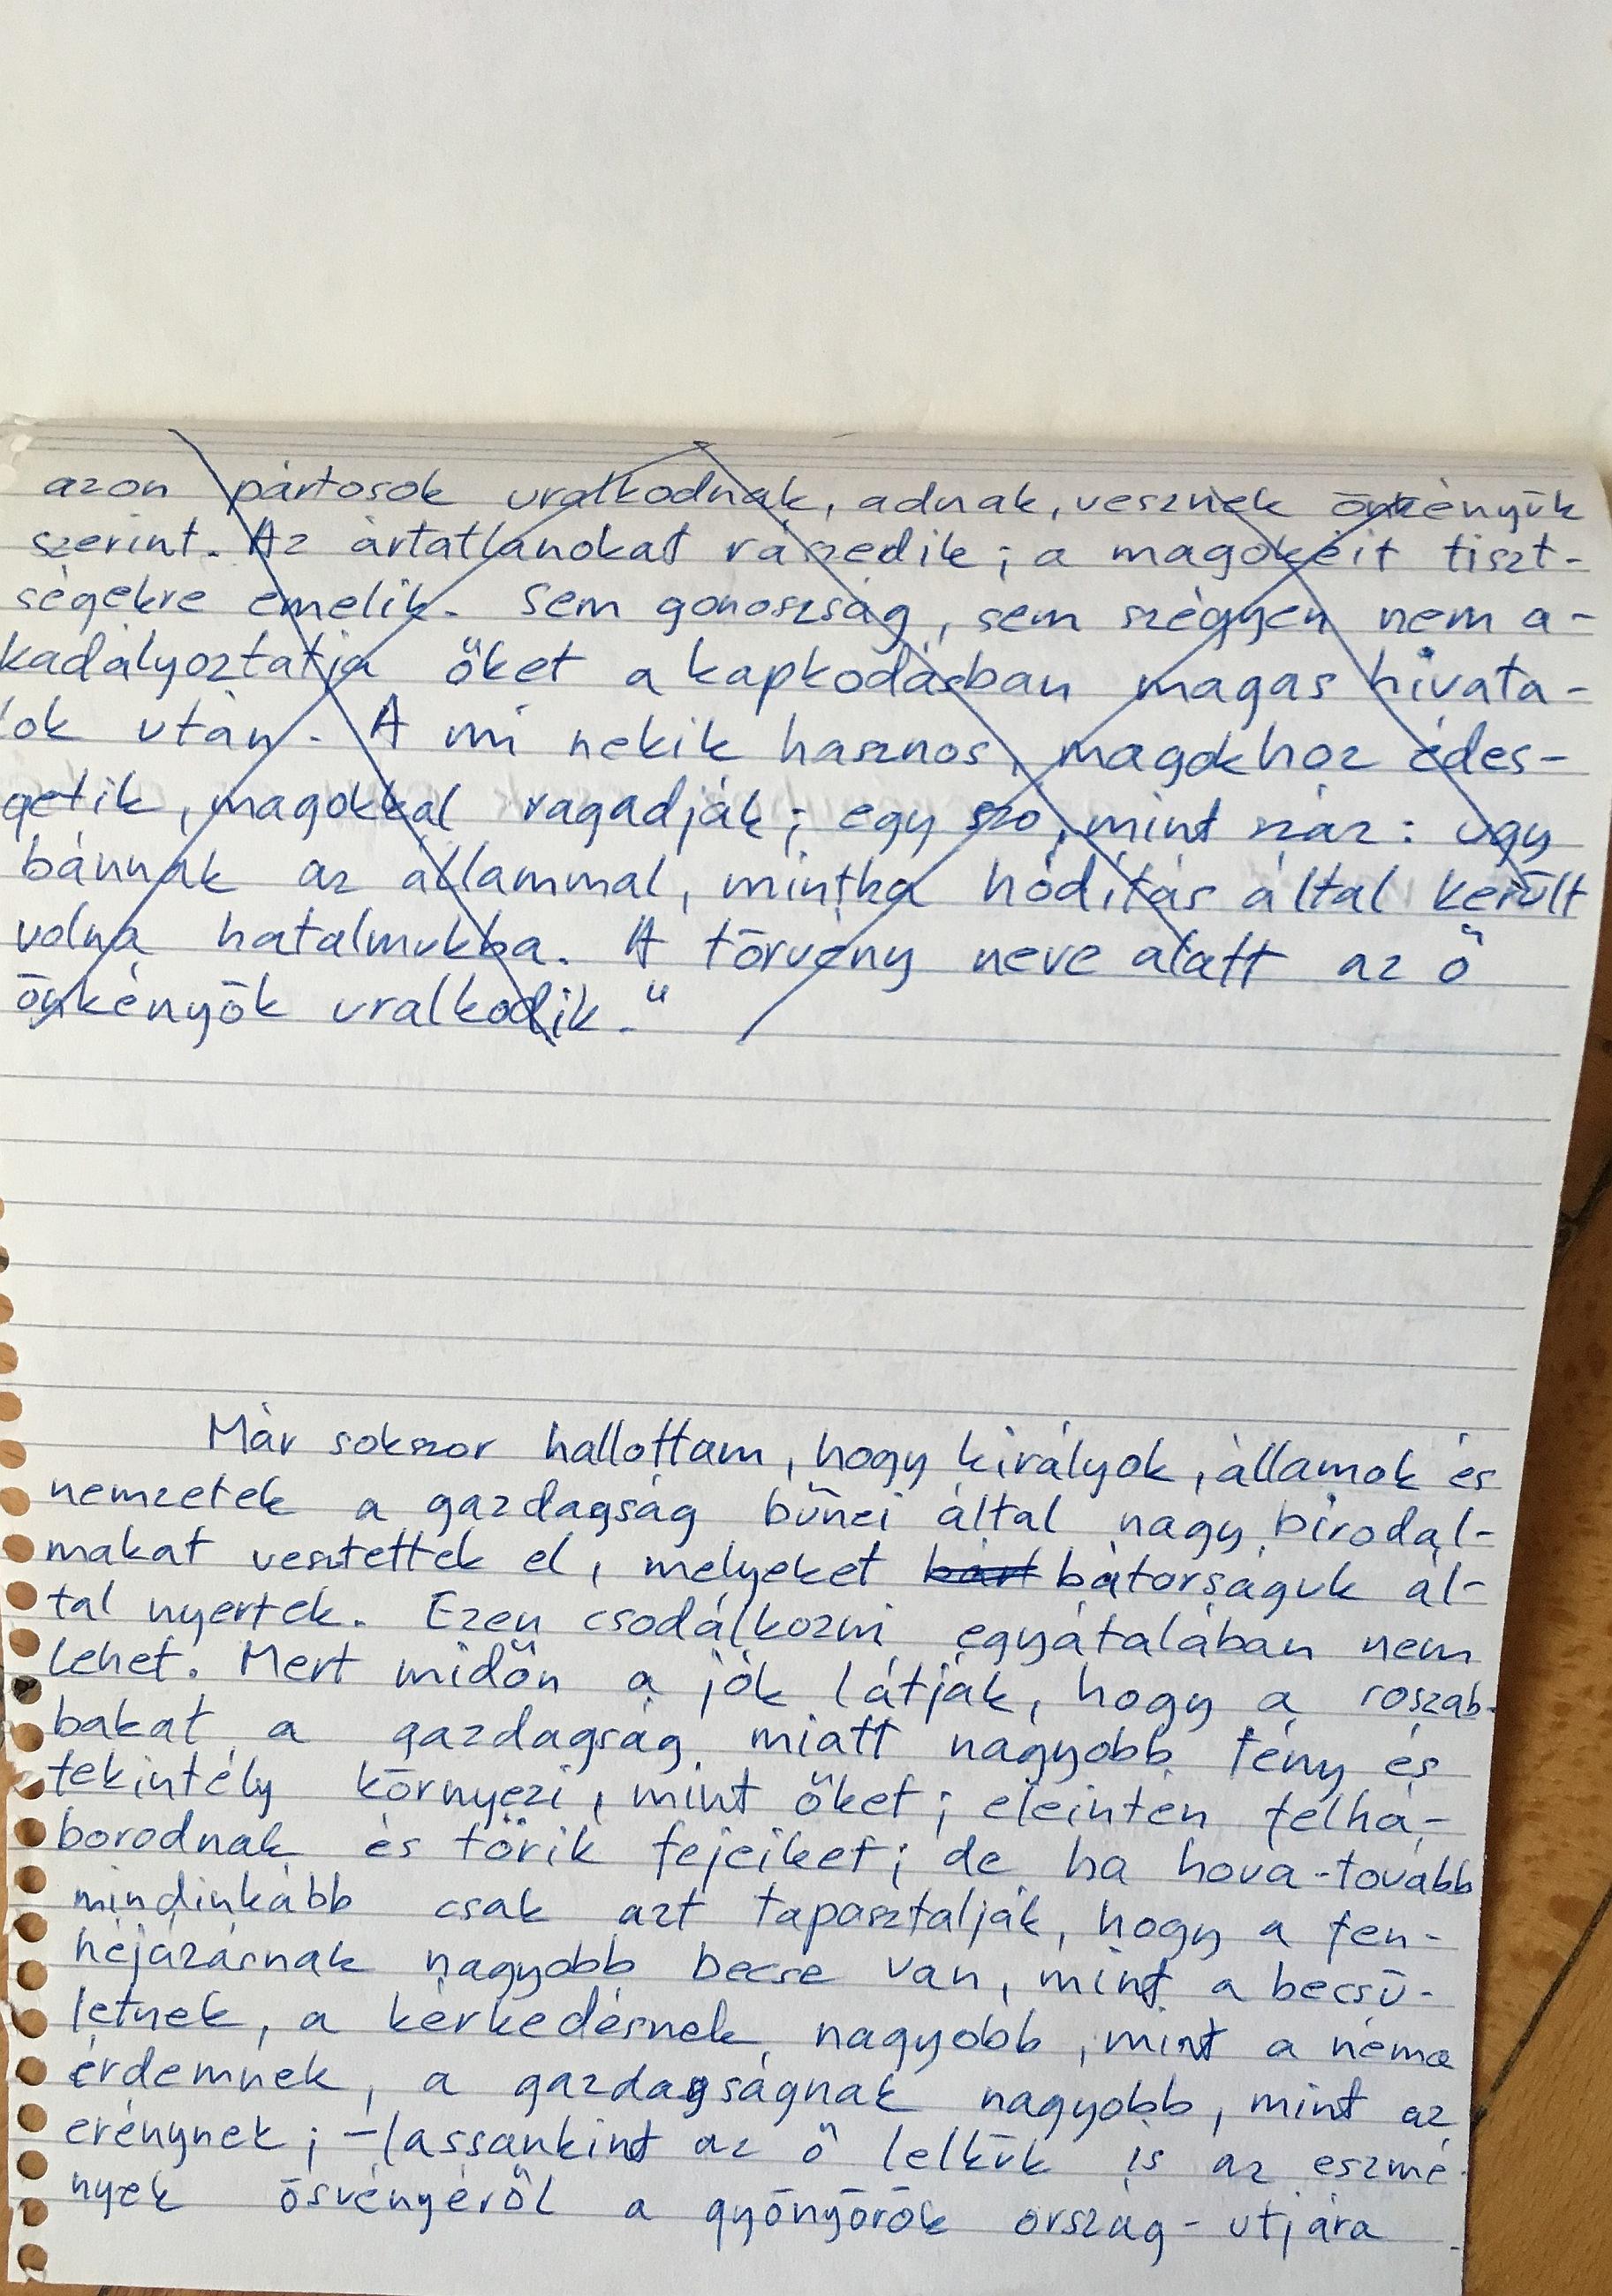 azon pártosok uralkodnak, adnak, vesznek önkényük
szerint. Az ártatlanokat rászedik; a magokéit tiszt-
ségekre emelik. Sem gonoszság, sem szégyen nem a-
kadályoztatja őket a kapkodásban magas hivata-
lok után. A mi nekik hasznos, magokhoz édes-
getik, magokkal ragadják; egy szó, mint száz: úgy
bánnak az állammal, mintha hódítás által került
volna hatalmukba. A törvény neve alatt az ő
önkényök uralkodik."
Már sokszor hallottam, hogy királyok, államok és
nemzetek a gazdagság bűnei által nagy birodal-
makat vesztettek el, melyeket bárt bátorságuk ál-
tal nyertek. Ezen csodálkozni egyátalában nem
lehet. Mert midőn a jók látják, hogy a roszab-
bakat a gazdagság miatt nagyobb fény és
tekintély környezi, mint őket; eleintén felhá-
borodnak és törik fejeiket; de ha hova-tovább
mindinkább csak azt tapasztalják, hogy a fen-
héjazásnak nagyobb becse van, mint a becsü-
letnek, a kérkedésnek nagyobb, mint a néma
érdemnek, a gazdagságnak nagyobb, mint az
erénynek; - lassankint az ő lelkük is az eszmé-
nyek ösvényéről a gyönyörök ország-utjára